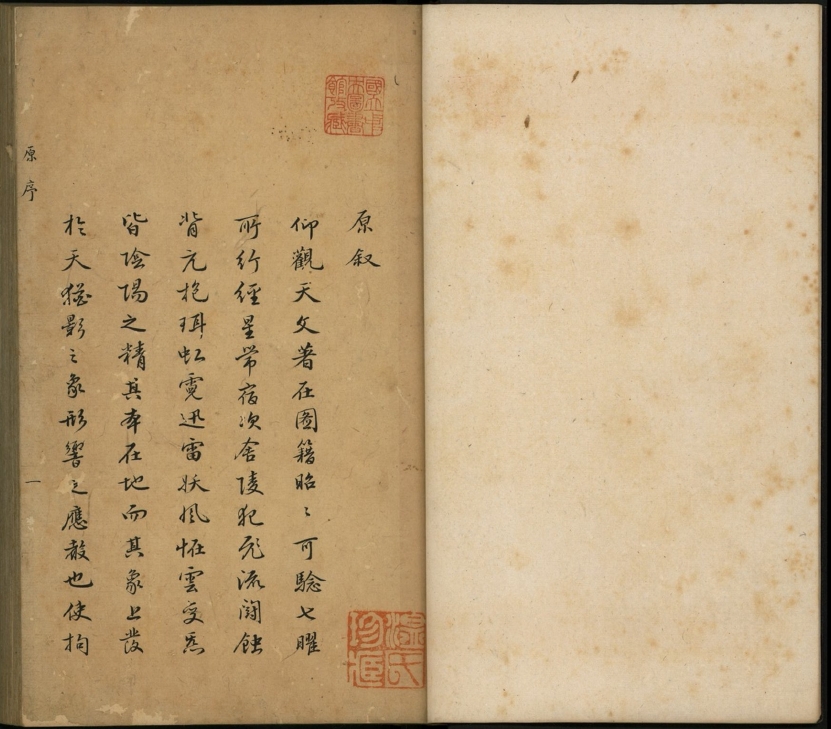 原叙
仰觀天文著在圖籍昭〻可驗七曜
所行經星常宿次舍陵犯飛流鬬蝕
背穴抱珥虹霓迅雷妖風怪雲变炁
皆陰陽之精其本在地而其象上發
於天猶影之象形響之應教也使拘
原序
一
國立中央圖書館收藏
溫氏珍藏